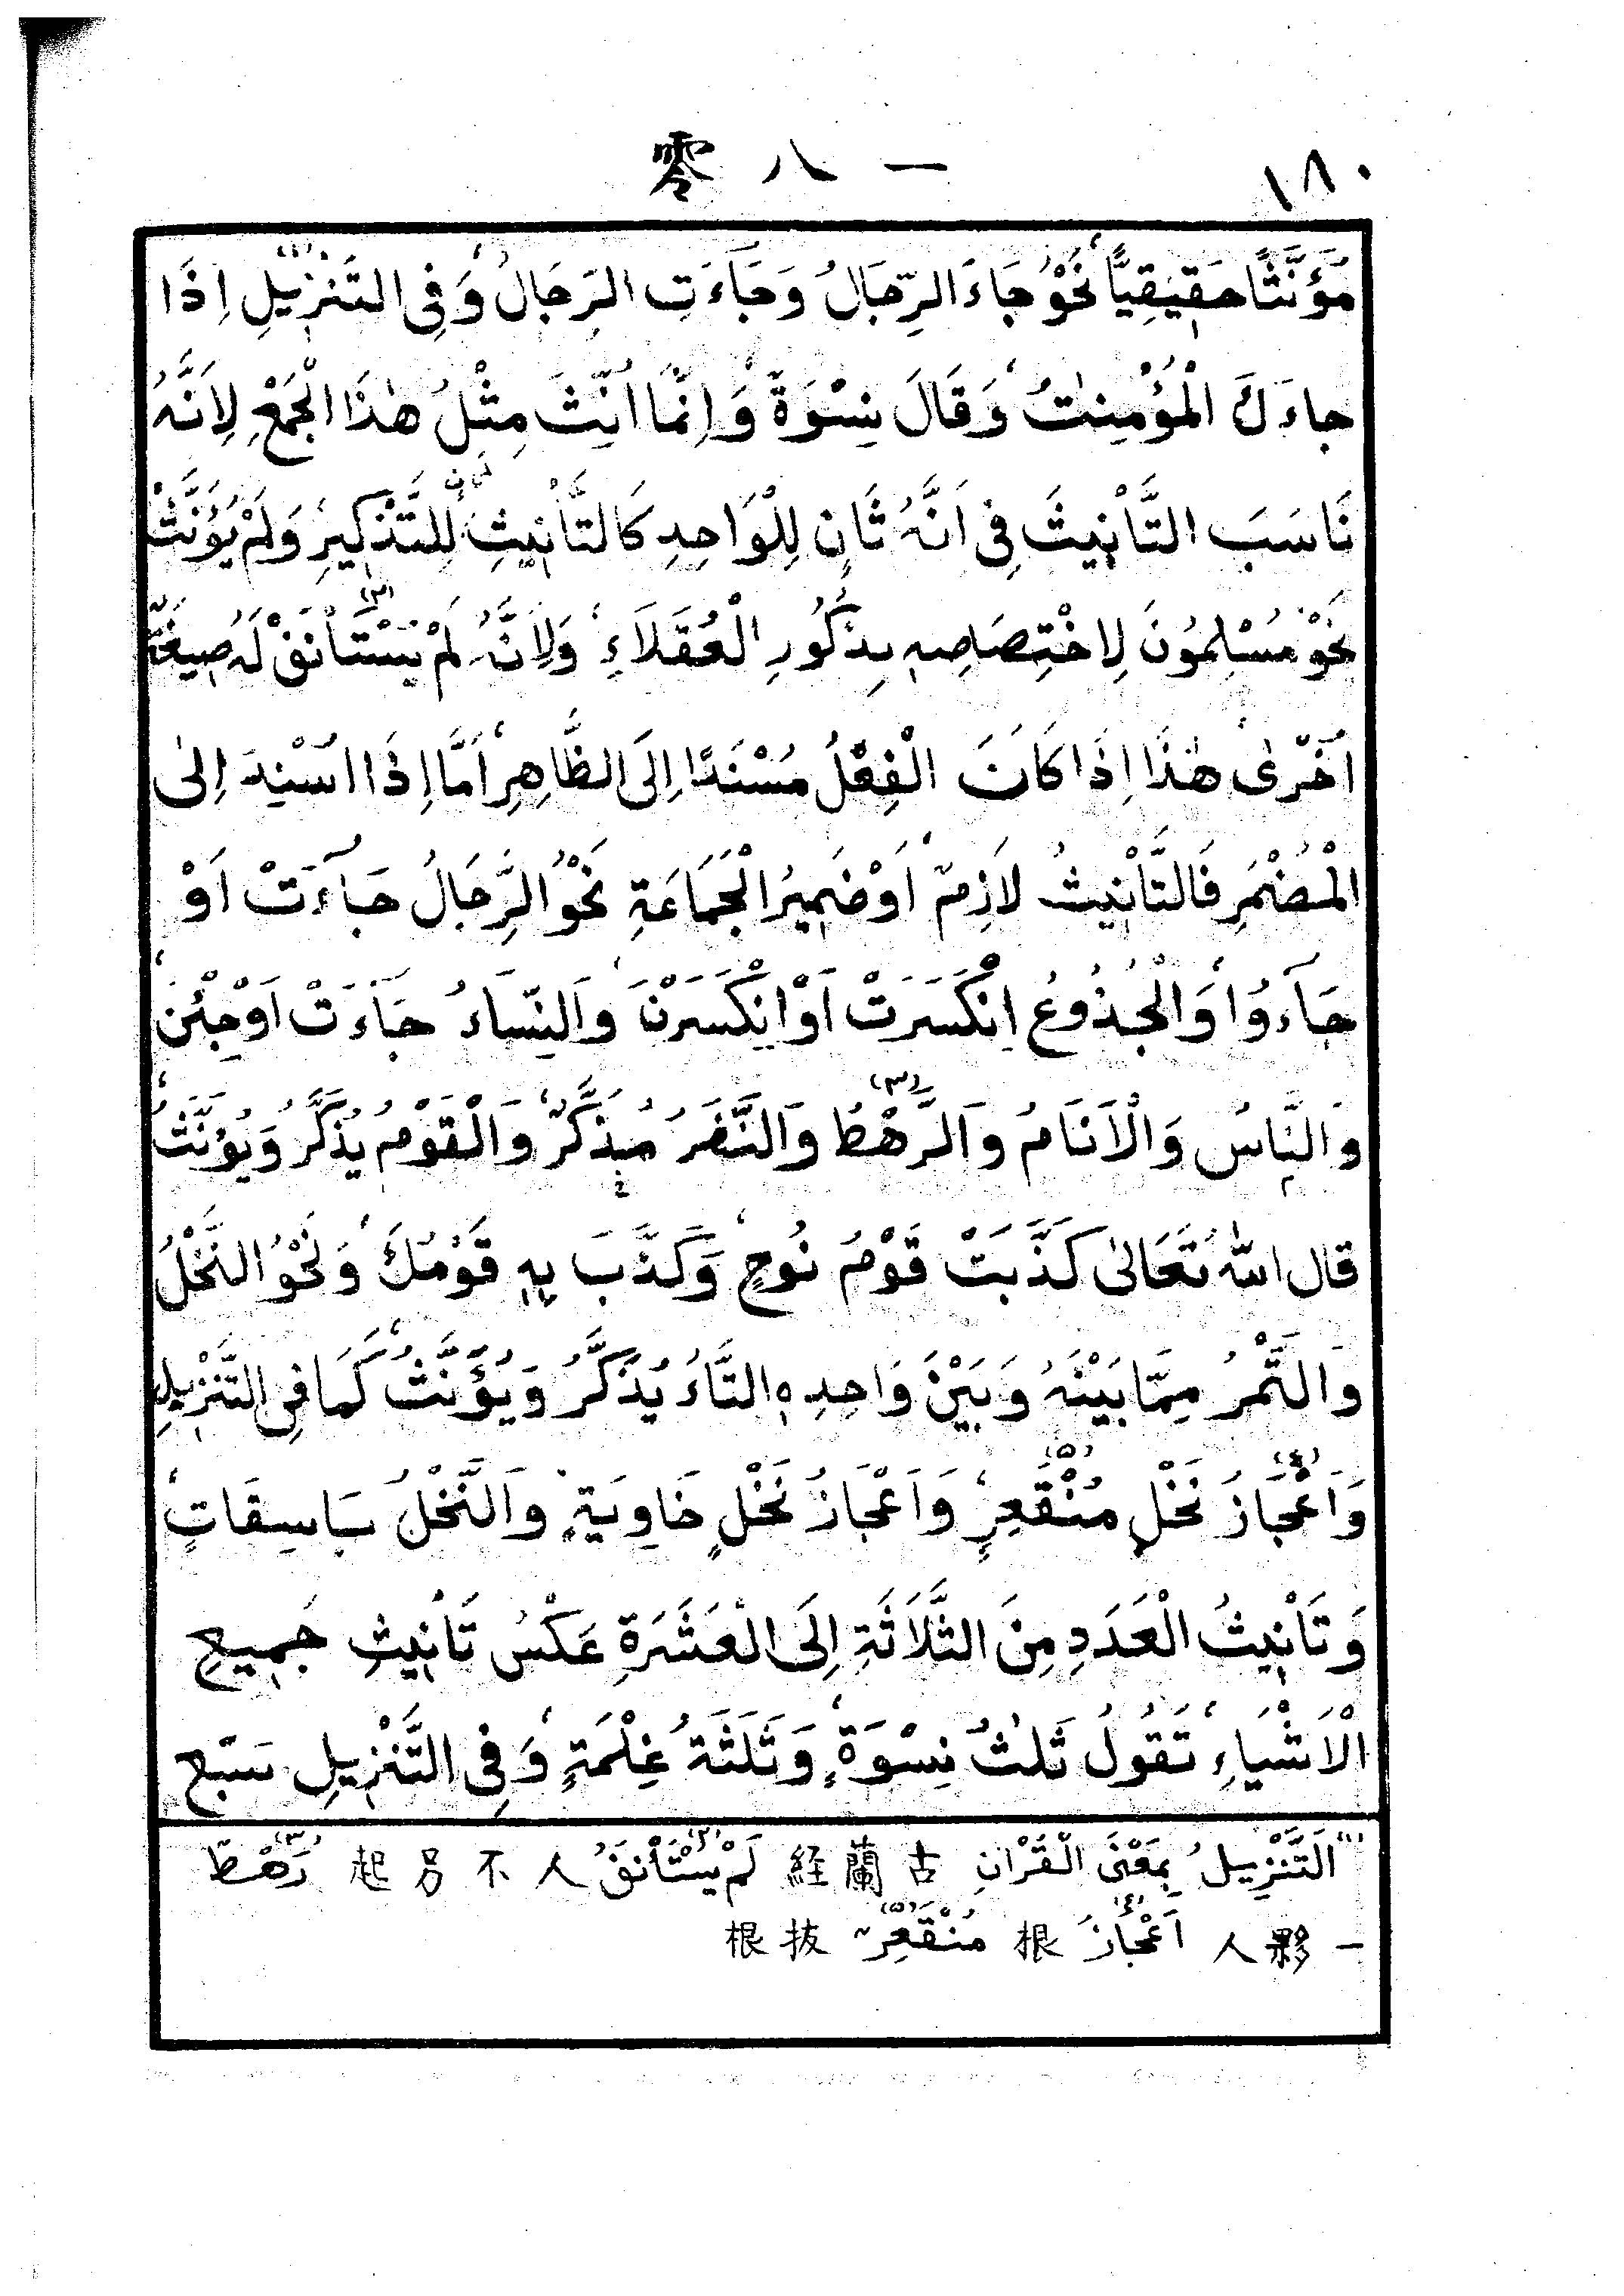 ١٨٠ 一 八 零
مُؤَنَّثًا حَقِيقِيًّا نَحْوُ جَاءَ الرِّجَالُ وَجَآءَتِ الرِّجَالُ وَفِى التَّنْزِيْلِ(١) اِذَا
جاءَكَ الْمُؤْمِنٰتُ وَقَالَ نِسْوَةٌ وَاِنَّمَا اُنِّثَ مِثْلُ هٰذَا الْجَمْعِ لِاَنَّهُ
نَاسَبَ التَّأْنِيثَ فِى اَنَّهُ ثَانٍ لِلْوَاحِدِ كَالتَّأْنِيثِ لِلتَّذْكِيرِ وَلَمْ يُؤَنَّثْ
نَحْوُ مُسْلِمُونَ لِاخْتِصَاصِهِ بِذُكُورِ الْعُقَلَاءِ وَلِاَنَّهُ لَمْ يُسْتَأْنَفْ(٢) لَهُ صِيغَةٌ
اُخْرٰى هٰذَا اِذَا كَانَ الْفِعْلُ مُسْنَدًا اِلَى الظَّاهِرِ اَمَّا اِذَا اُسْنِدَ اِلٰى
الْمُضْمَرِ فَالتَّأْنِيثُ لاَزِمٌ اَوْ ضَمِيرُ الْجَمَاعَةِ نَحْوُ الرِّجَالُ جَآءَتْ اَوْ
جَآءُوا وَالْجُذُوعُ اِنْكَسَرَتْ اَوْ اِنْكَسَرْنَ وَالنِّسَاءُ جَآءَتْ اَوْ جِئْنَ
وَالنَّاسُ وَالْاَنَامُ وَالرَّهْطُ(٣) وَالنَّفَرُ مُذَكَّرٌ وَالْقَوْمُ يُذَكَّرُ وَيُؤَنَّثُ
قال اللهُ تَعَالٰى كَذَّبَتْ قَوْمُ نُوحٍ وَكَذَّبَ بِهِ قَوْمُكَ وَنَحْوُ النَّخْلُ
وَالتَّمْرُ مِمَّا بَيْنَهُ وَبَيْنَ وَاحِدِهِ التَّاءُ يُذَكَّرُ وَيُؤَنَّثُ كَمَا فِى التَّنْزِيلِ
وَاَعْجَازُ(٤) نَخْلٍ مُنْقَعِرٍ(٥) وَاَعْجَازُ نَخْلٍ خَاوِيَةٍ وَالنَّخْلُ بَاسِقَاتٍ
وَتَأْنِيثُ الْعَدَدِ مِنَ الثَّلَاثَةِ اِلَى الْعَشَرَةِ عَكْسُ تَأْنِيثِ جَمِيعِ
الْاَشْيَاءِ تَقُولُ ثَلٰثُ نِسْوَةٍ وَثَلٰثَةُ غِلْمَةٍ وَفِى التَّنْزِيلِ سَبْعَ
(١) اَلتَّنْزِيلُ بِمَعْنَى الْقُرْانِ 古 蘭 経 (٢) لَمْ يُسْتَأْنَفْ 人 不 另 起 (٣) رَهْطٌ
一 夥 人 (٤) اَعْجَازُ 根 (٥) مُنْقَعِرٌ 拔 根